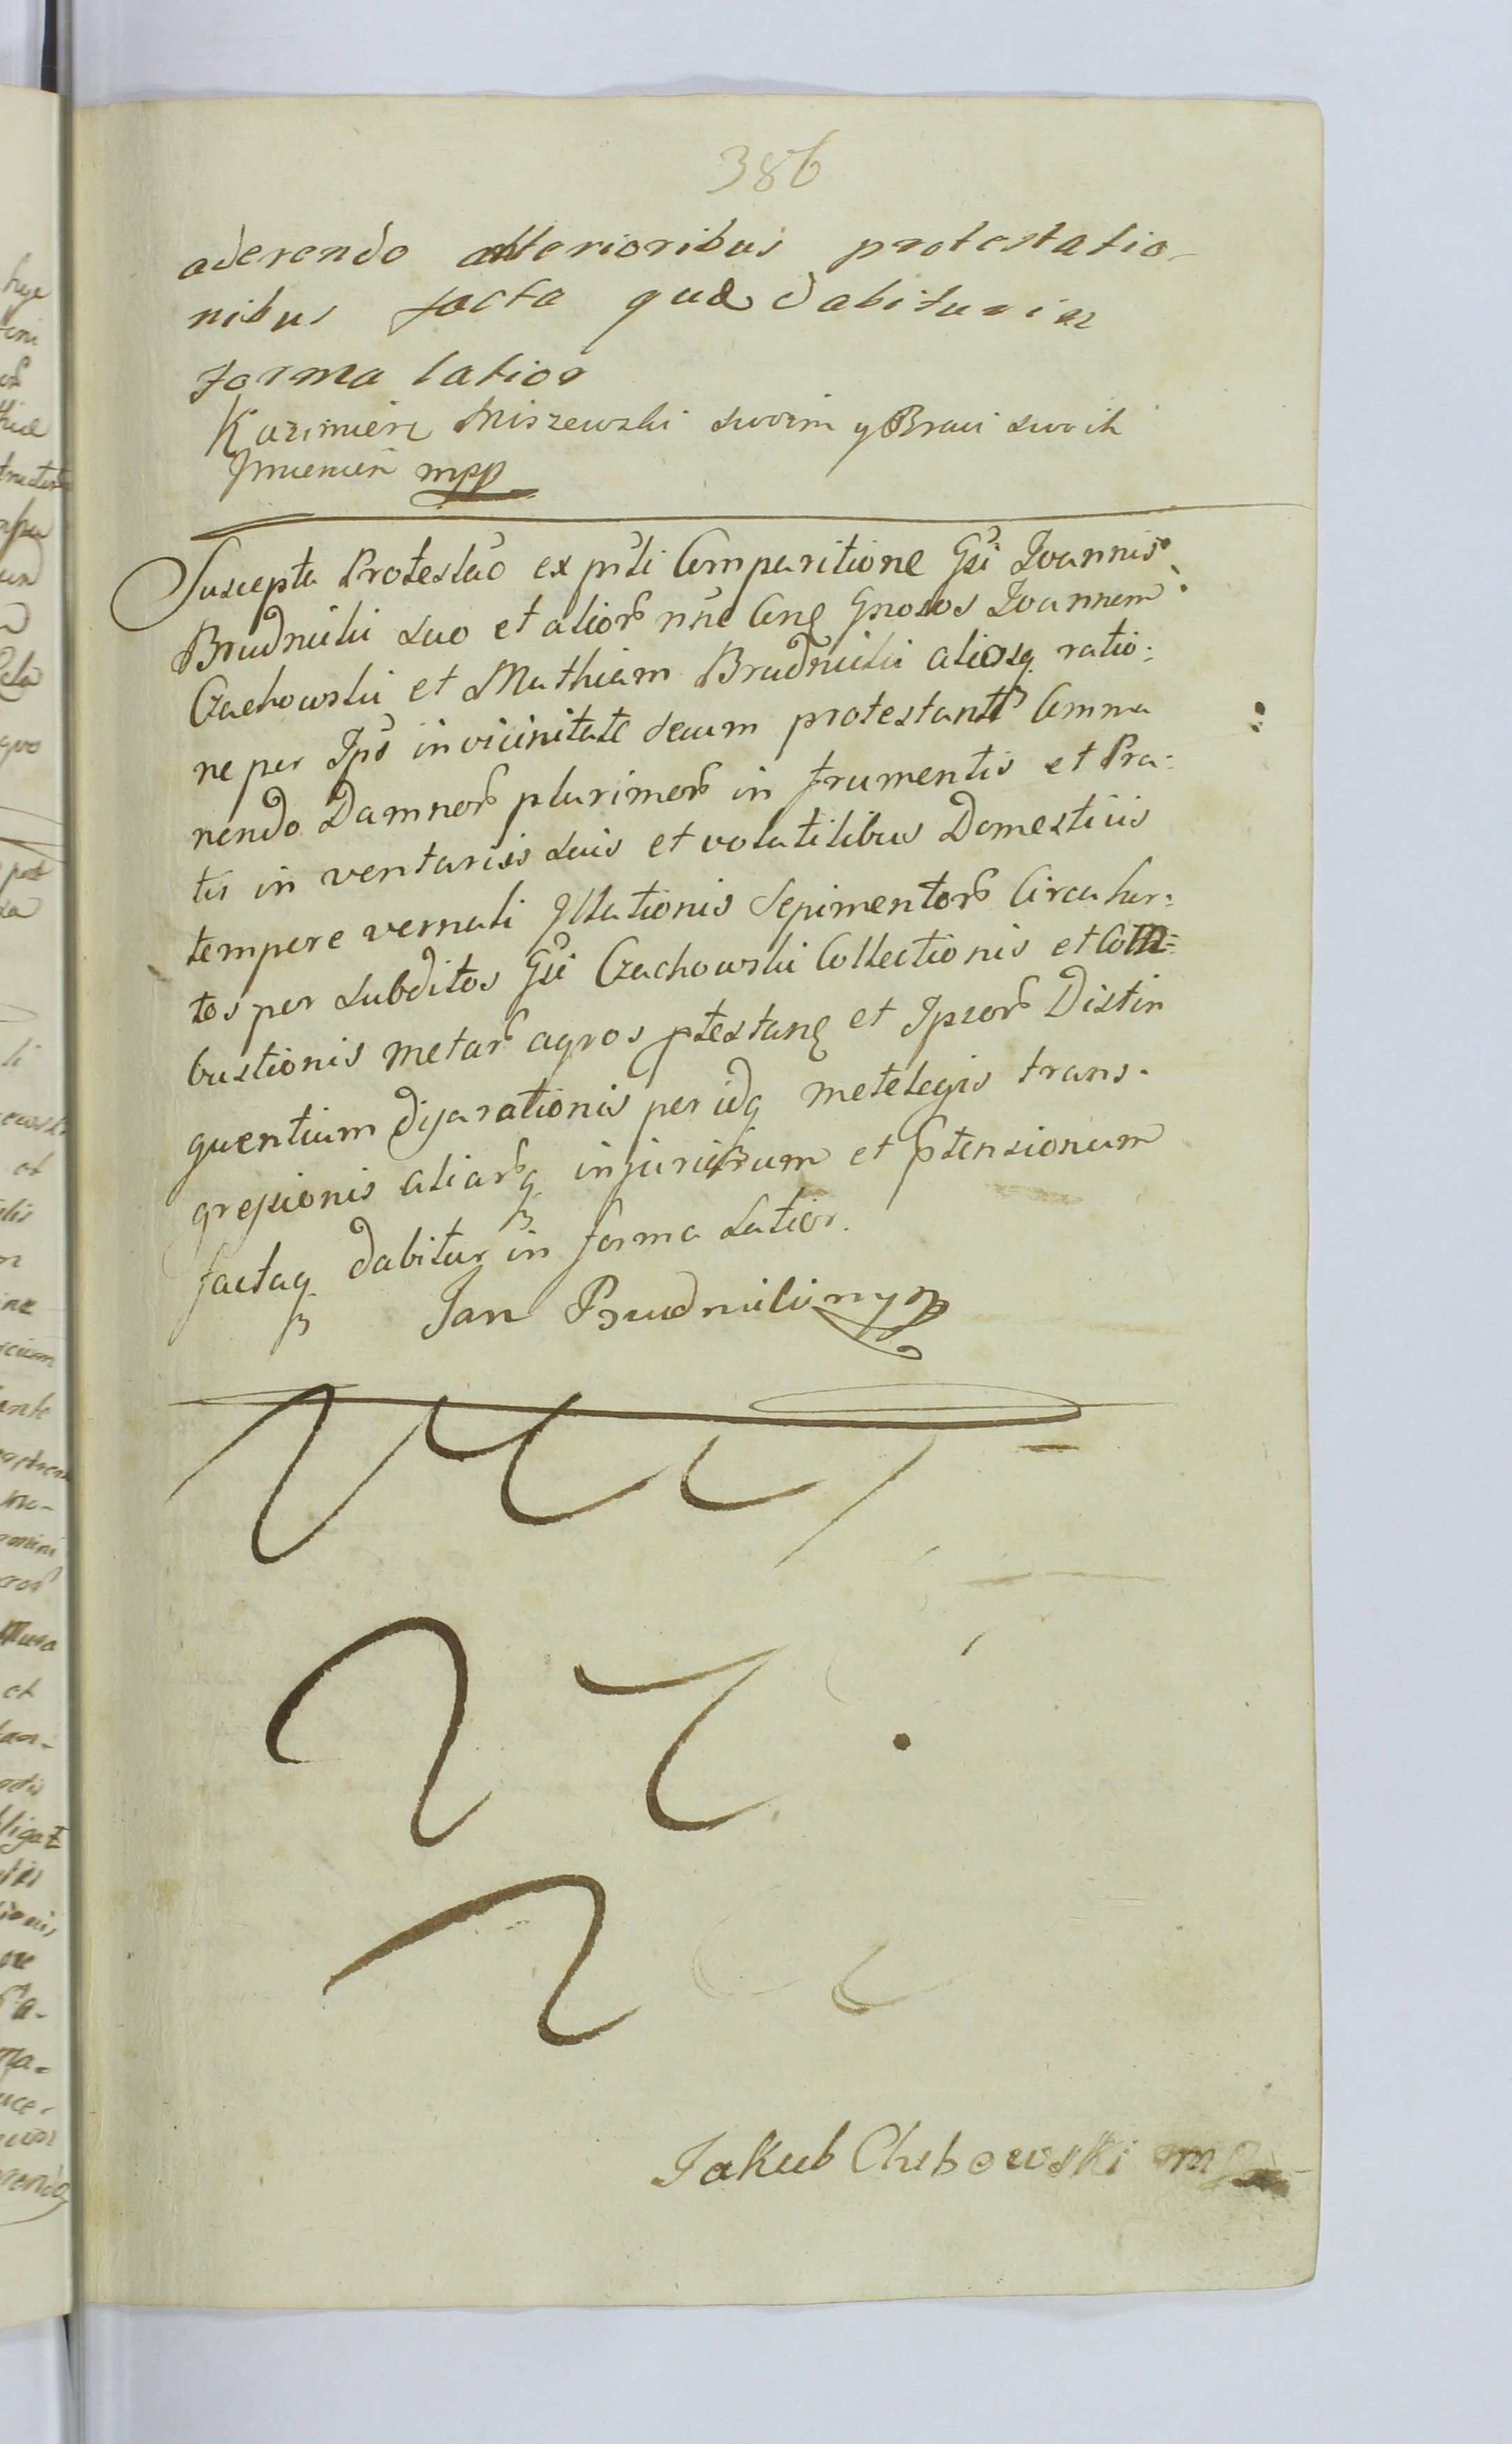 386
aderendo ulterioribus protestatio-
nibus facta quæ dabitur in
forma latior
Kazimierz Miszewski swoim y Braci swoich
Jmieniem mpp
Suscepta Protestaõ ex pñti Comparitione Gsi Joannis
Brudnicki suo et alior nñe Cong Gnosos Joannem
Czachowski et Mathiam Brudnicki aliosq ratio:
ne per Ipõs in vicinitate secum protestanti Commi
nendo Damnor plurimor in frumentis et Pra:
tis in ventariis suis et volatilibus Domesticis
tempore vernali Illationis Sepimentor Circa hor:
tos per subditos Gsi Czachowski Collectionis et Com=
bustionis metar agros ptestang et Ipsor Distin
guentium disparationis per idq mete legis trans-
gressionis aliarq injuriarum et ptensionum
factaq dabitur in forma latior.
Jan Brudnicki mpp
Jakub Chybowski mpp